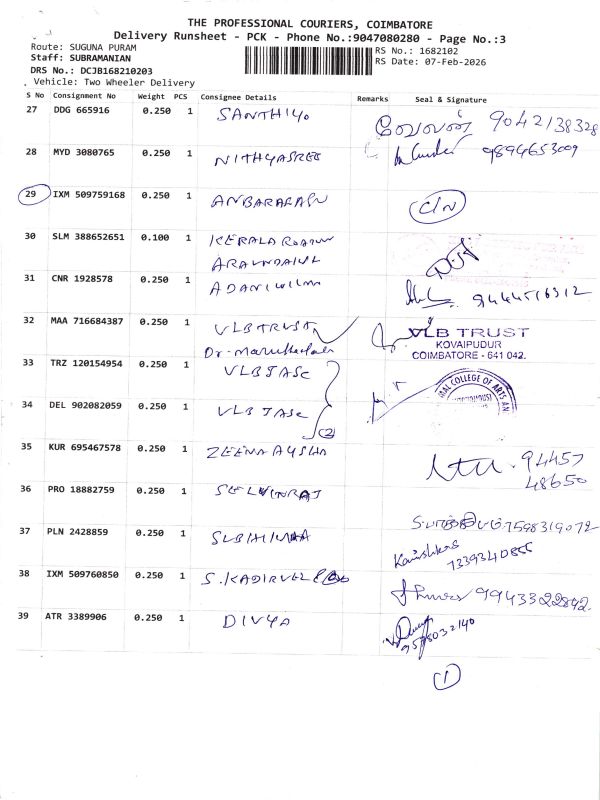 THE PROFESSIONAL COURIERS, COIMBATORE
Delivery Runsheet - PCK - Phone No.:9047080280 - Page No.:3
Route: SUGUNA PURAM
RS No.: 1682102
Staff: SUBRAMANIAN
RS Date: 07-Feb-2026
DRS No.: DCJB168210203
Vehicle: Two Wheeler Delivery
S No Consignment No Weight PCS Consignee Details Remarks Seal & Signature
27 DDG 665916 0.250 1 SANTHIYO
வேலன் 9042138328
28 MYD 3080765 0.250 1 NITHYASREE
9894653009
29 IXM 509759168 0.250 1 ANBARARASU
C/N
30 SLM 388652651 0.100 1 KERALA
31 CNR 1928578 0.250 1 ADANI
9444516312
32 MAA 716684387 0.250 1 VLB TRUST
VLB TRUST
KOVAIPUDUR
COIMBATORE - 641 042.
Dr.
33 TRZ 120154954 0.250 1 VLB JASC
COLLEGE OF ARTS AN
34 DEL 902082059 0.250 1 VLB JASC
(2)
35 KUR 695467578 0.250 1 ZEENA AYSHA
94457
48650
36 PRO 18882759 0.250 1 SELVINRAJ
37 PLN 2428859 0.250 1
7598319072
Kanishkaa
7339340855
38 IXM 509760850 0.250 1 S. KADIRVEL
9943322842
39 ATR 3389906 0.250 1 DIVYA
9585032140
1